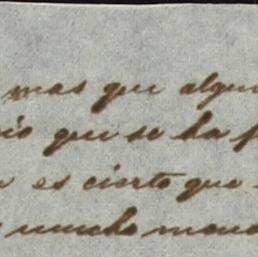 mas que algun
que se ha
es cierto que
mucho